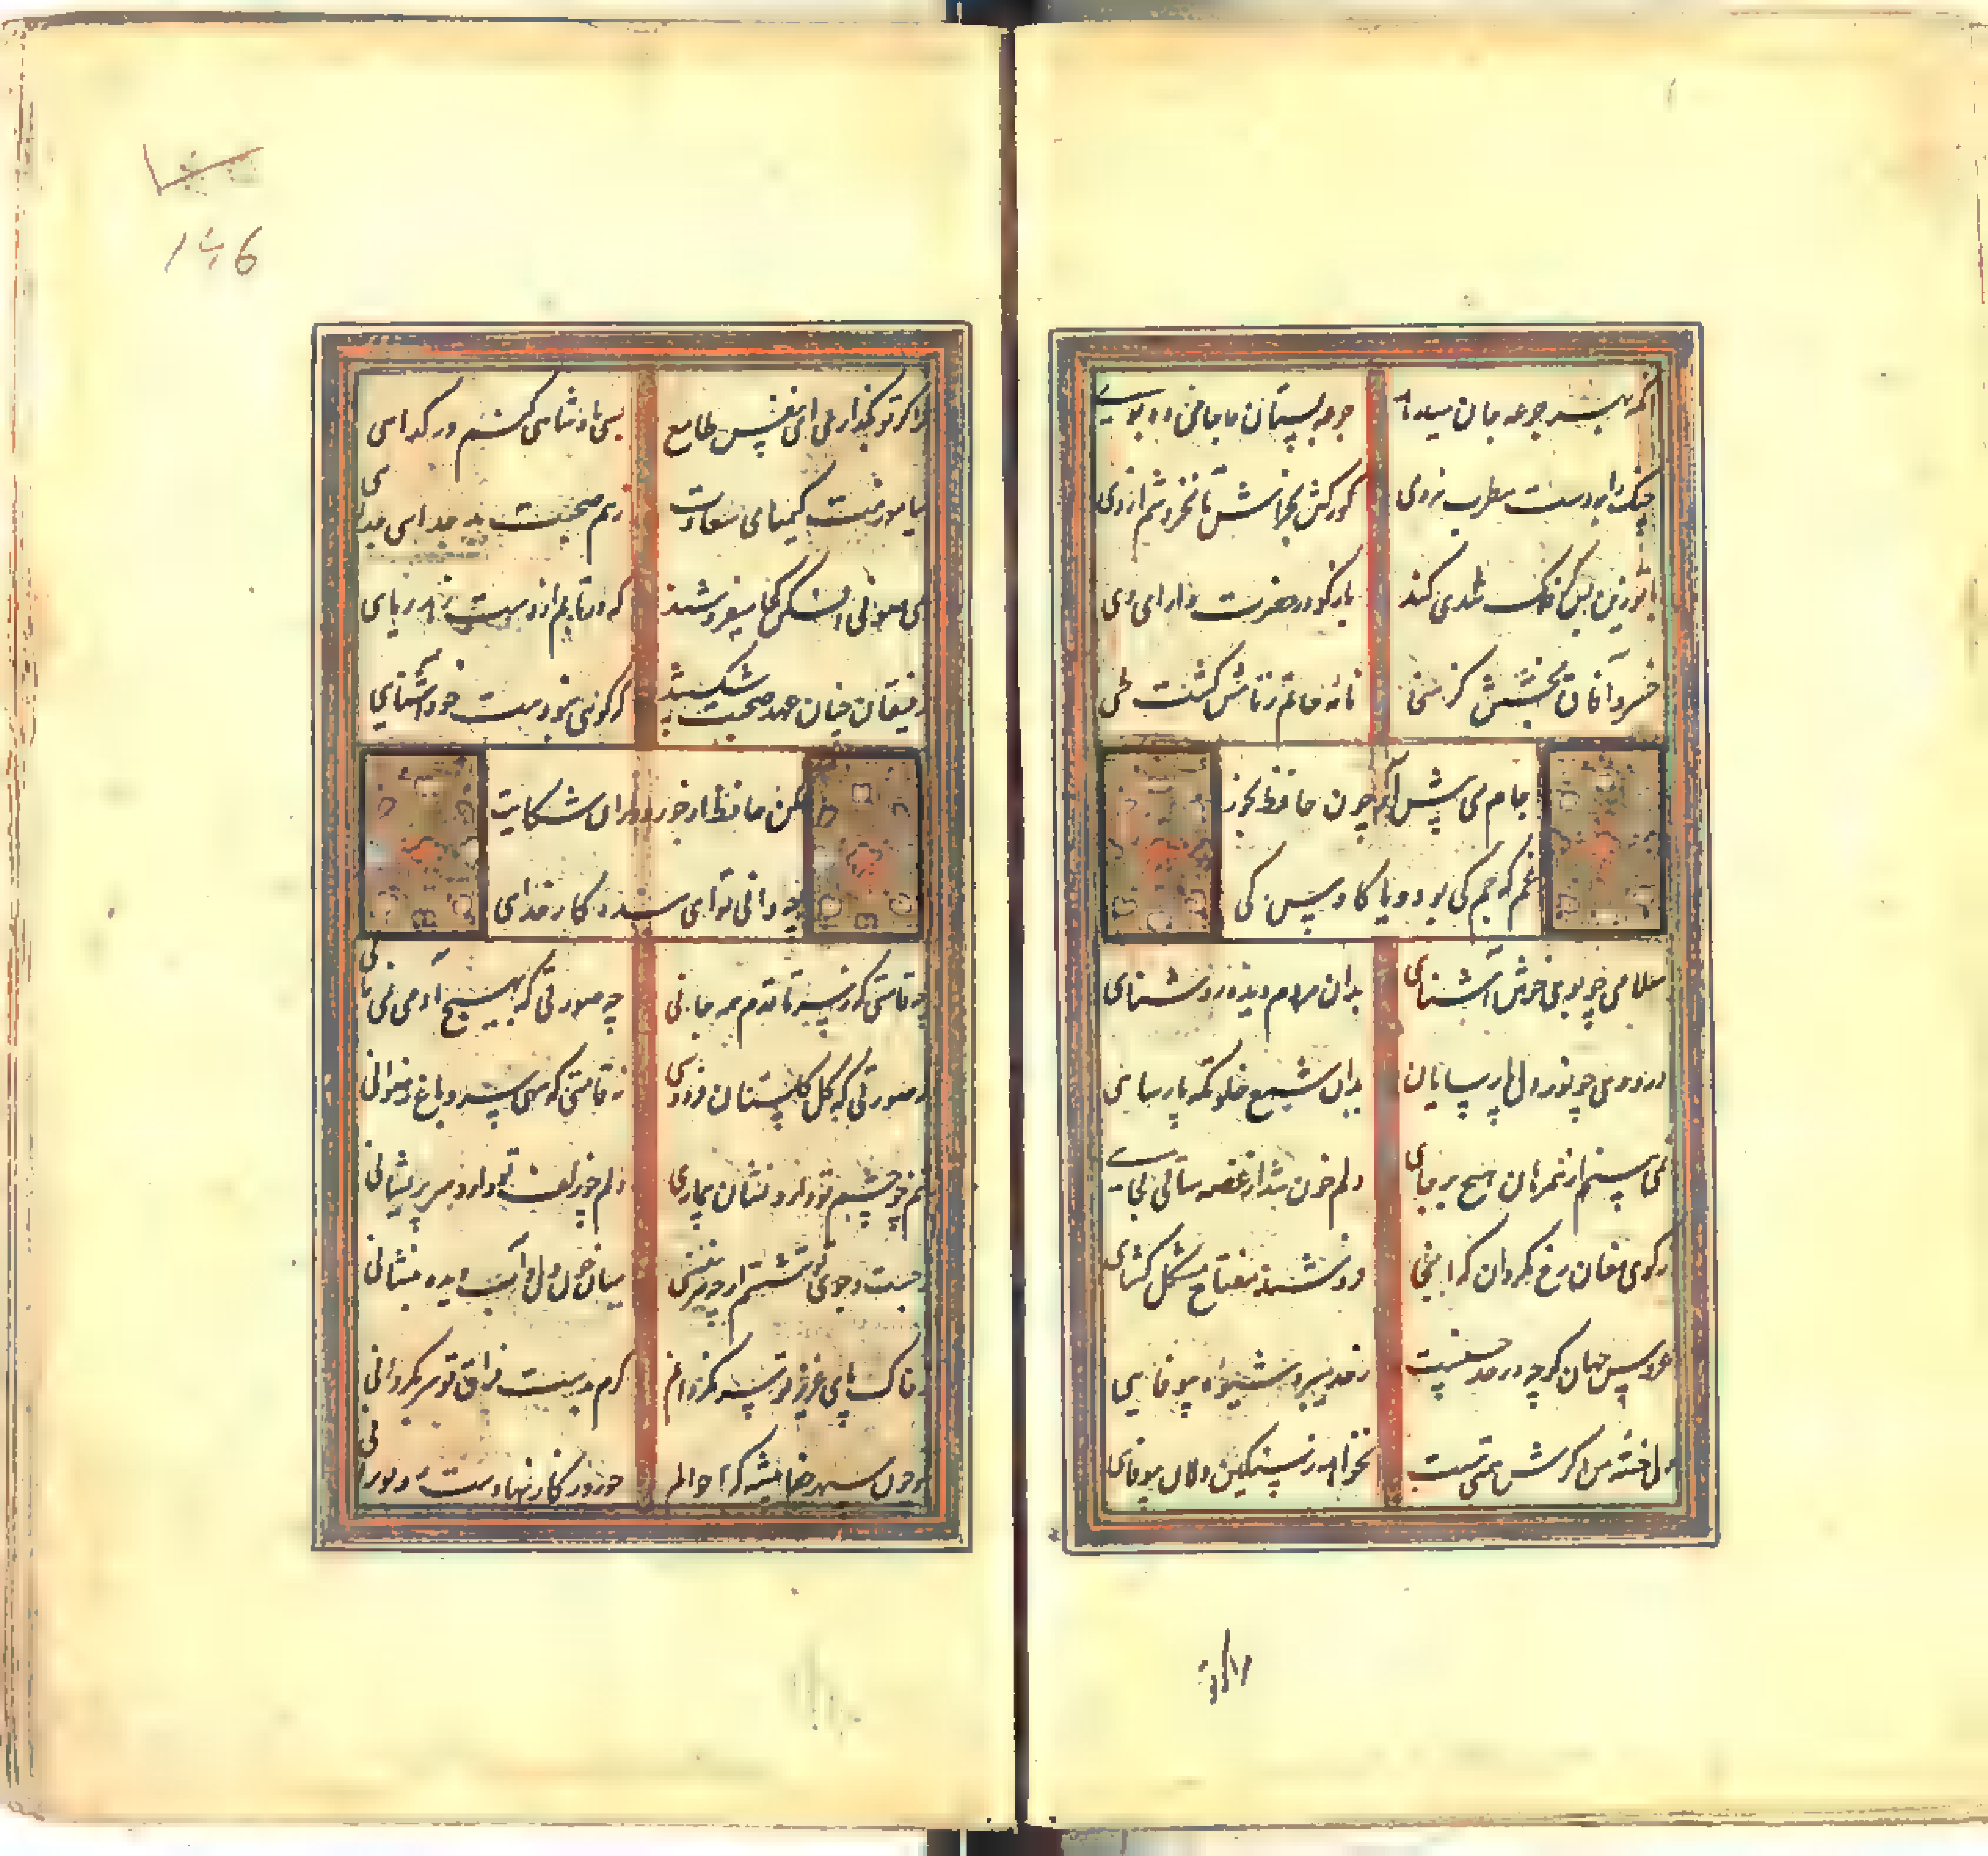 چنگ را بر دست مطرب نه دمی
گو رگش بخراش تا بخروشم از وی
بازگو در حضرت دارای ری
خسرو آفاق بخشش کز سخا
نامه حاتم ز نامش گشت طی
جام می پیش آر و چون حافظ مخور
غم که جم کی بود و یا کاوس کی
سلامی چو بوی خوش آشنایی
بدان مردم دیده روشنایی
درودی چو نور دل پارسایان
بدان شمع خلوتگه پارسایی
نمی بینم از همدمان هیچ بر جای
دلم خون شد از غصه ساقی کجایی
ز کوی مغان رخ مگردان که آنجا
فروشند مفتاح مشکل گشایی
عروس جهان گرچه در حد حسنست
ز حد میبرد شیوه بیوفایی
دل خسته من گرش همتی هست
نخواهد ز سنگین دلان مومیایی
مرا گر تو بگذاری ای نفس طامع
بسی پادشاهی کنم در گدایی
بیاموزمت کیمیای سعادت
ز هم صحبت بد جدایی جدایی
می صوفی افکن کجا میفروشند
که در تابم از دست زهد ریایی
رفیقان چنان عهد صحبت شکستند
که گویی نبودست خود آشنایی
مکن حافظ از جور دوران شکایت
چه دانی تو ای بنده کار خدایی
چه قامتی که ز سر تا قدم همه جانی
چه صورتی که بهیچ آدمی نمی مانی
نه صورتی که گل گلستان فردوسی
نه قامتی که سهی سرو باغ رضوانی
تنم چو چشم تو دارد نشان بیماری
دلم چو زلف تو دارد سر پریشانی
میان خون دل و آب دیده بنشانی
ز خاک پای عزیز تو سر نگردانم
گرم بدست فراق تو سر بگردانی
146